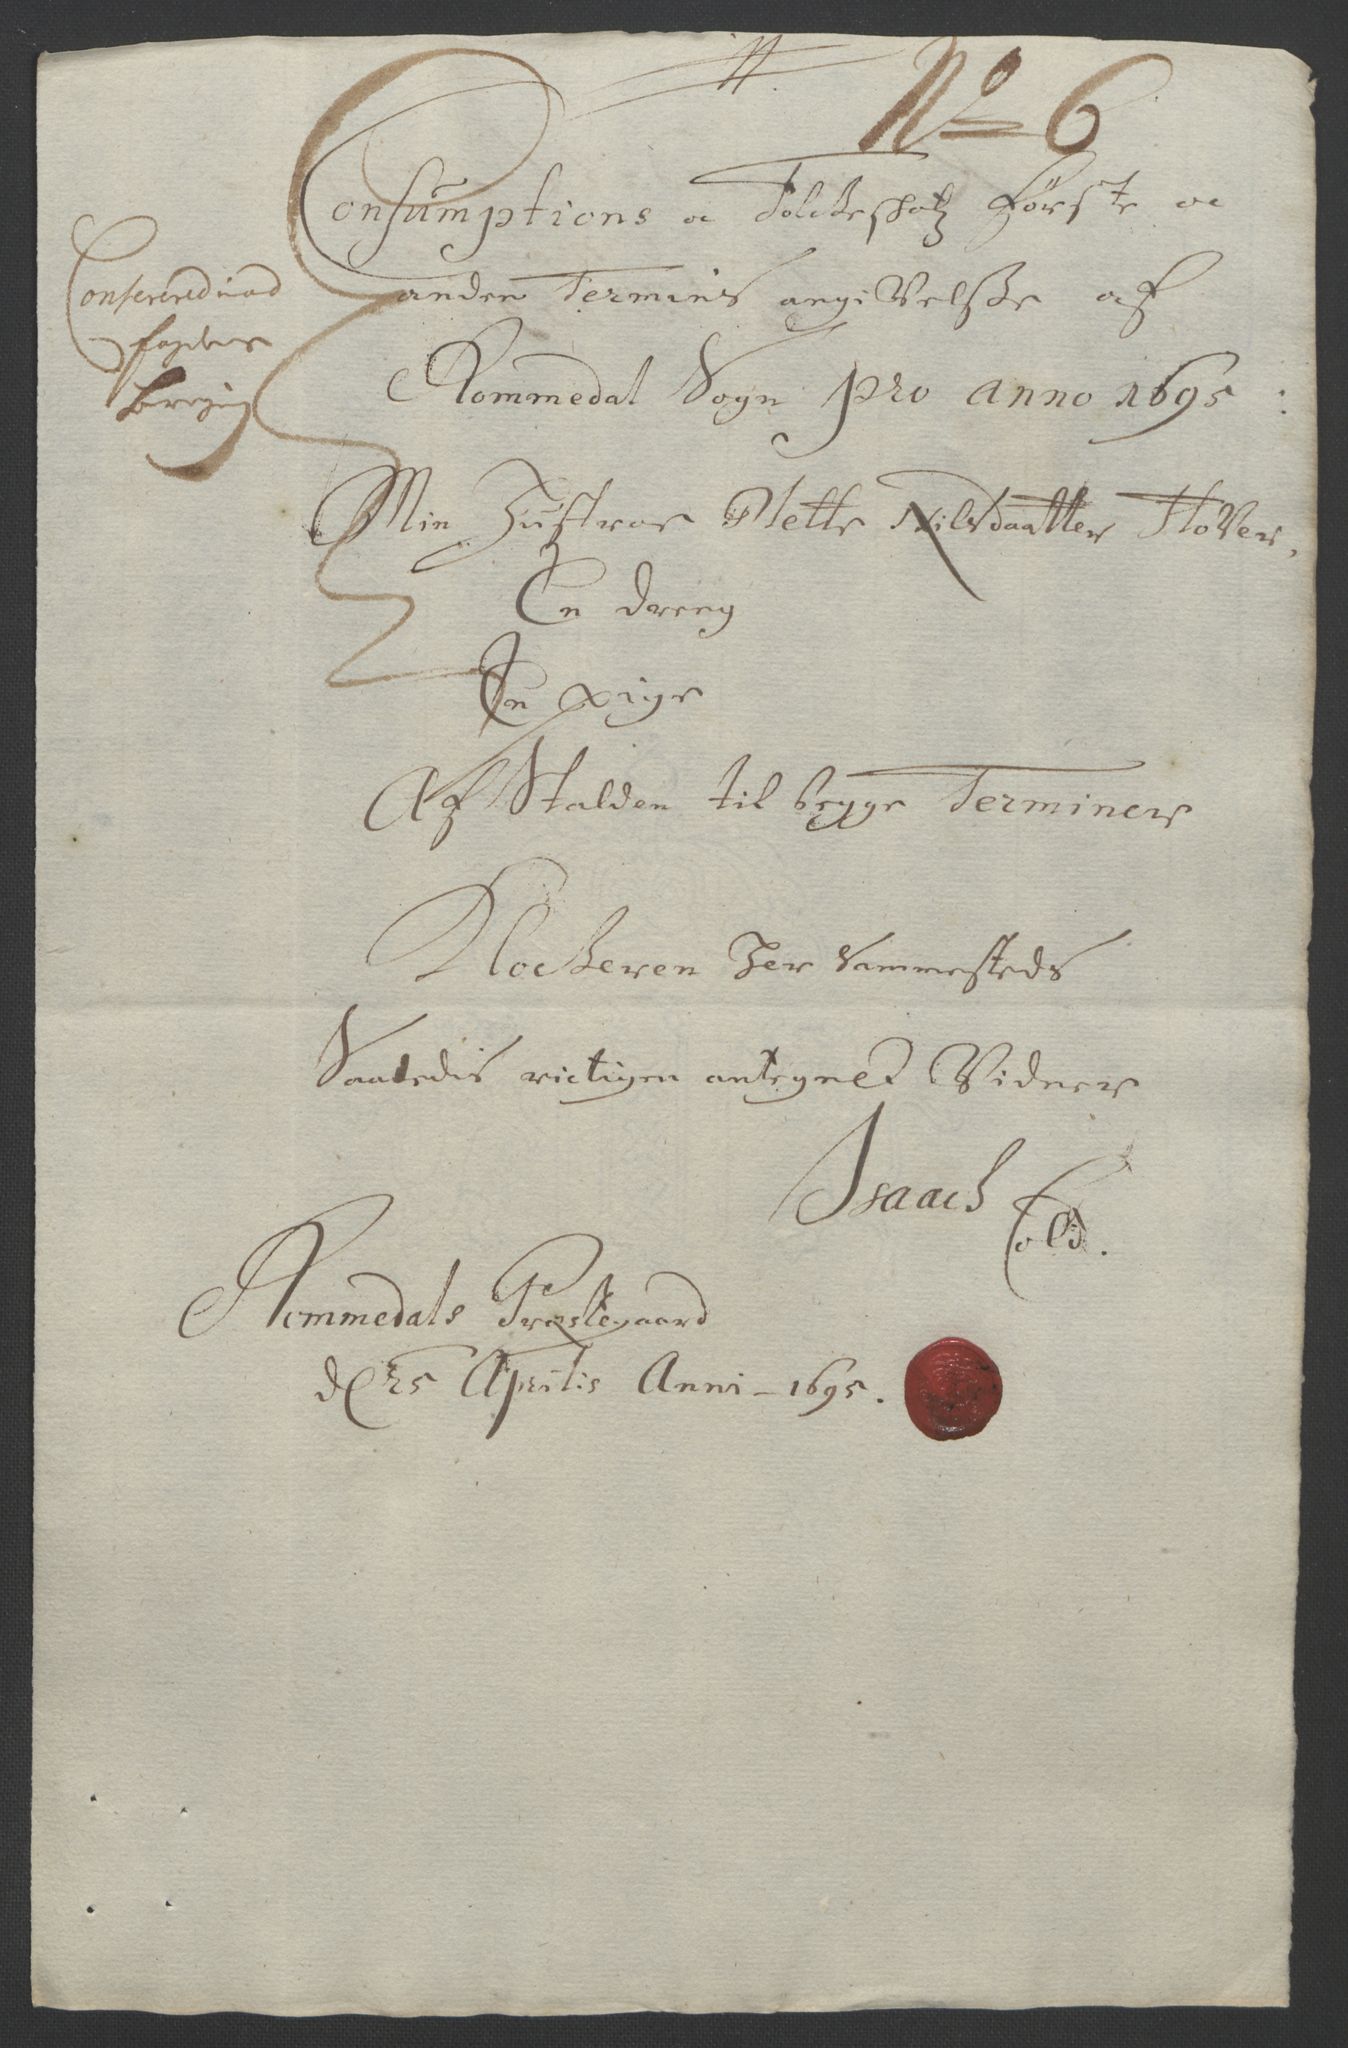 No 6
Consumptions oc Folckeschatz Første oc
anden Termins angivelsße aff
Rommedal Sogn pro anno 1695:
Min Hustroe Mette Nilsdaatter Hover,
En dreng
En pige
Af Stalden til begge Terminer
Klockeren her Sammesteds
Saaledis rictigen antegnet Vidner
Isaach Cold.
Rommedals Præstegaard
d 25 Aprilis Anni 1695.